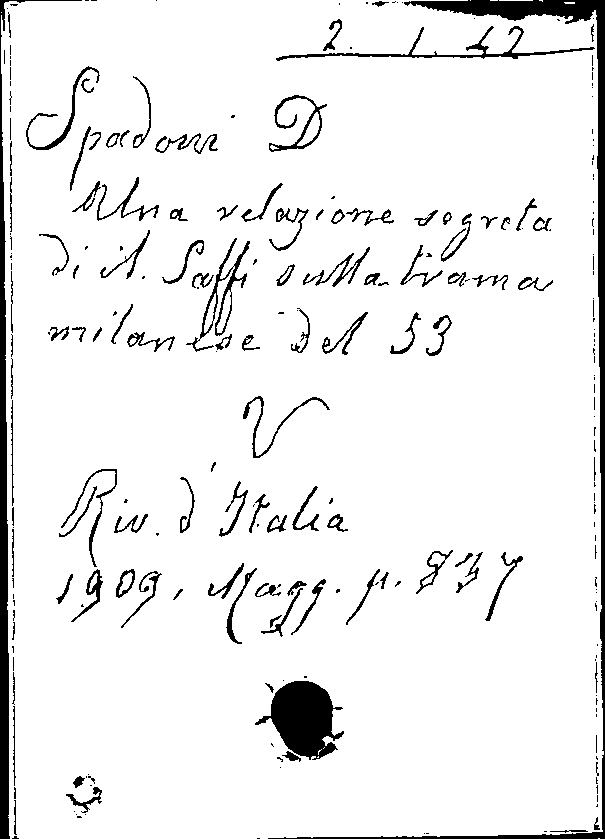 2. 1. 42
Spadoni D
Una relazione segreta
di A. Saffi sulla trama
milanese del 53
V
Riv. d'Italia
1909, Magg. p. 837